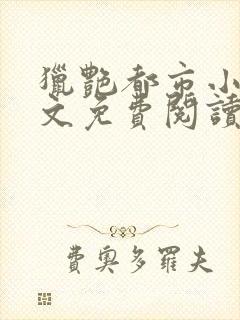 獵艷都市小
文免費閱讀
費奧多羅夫